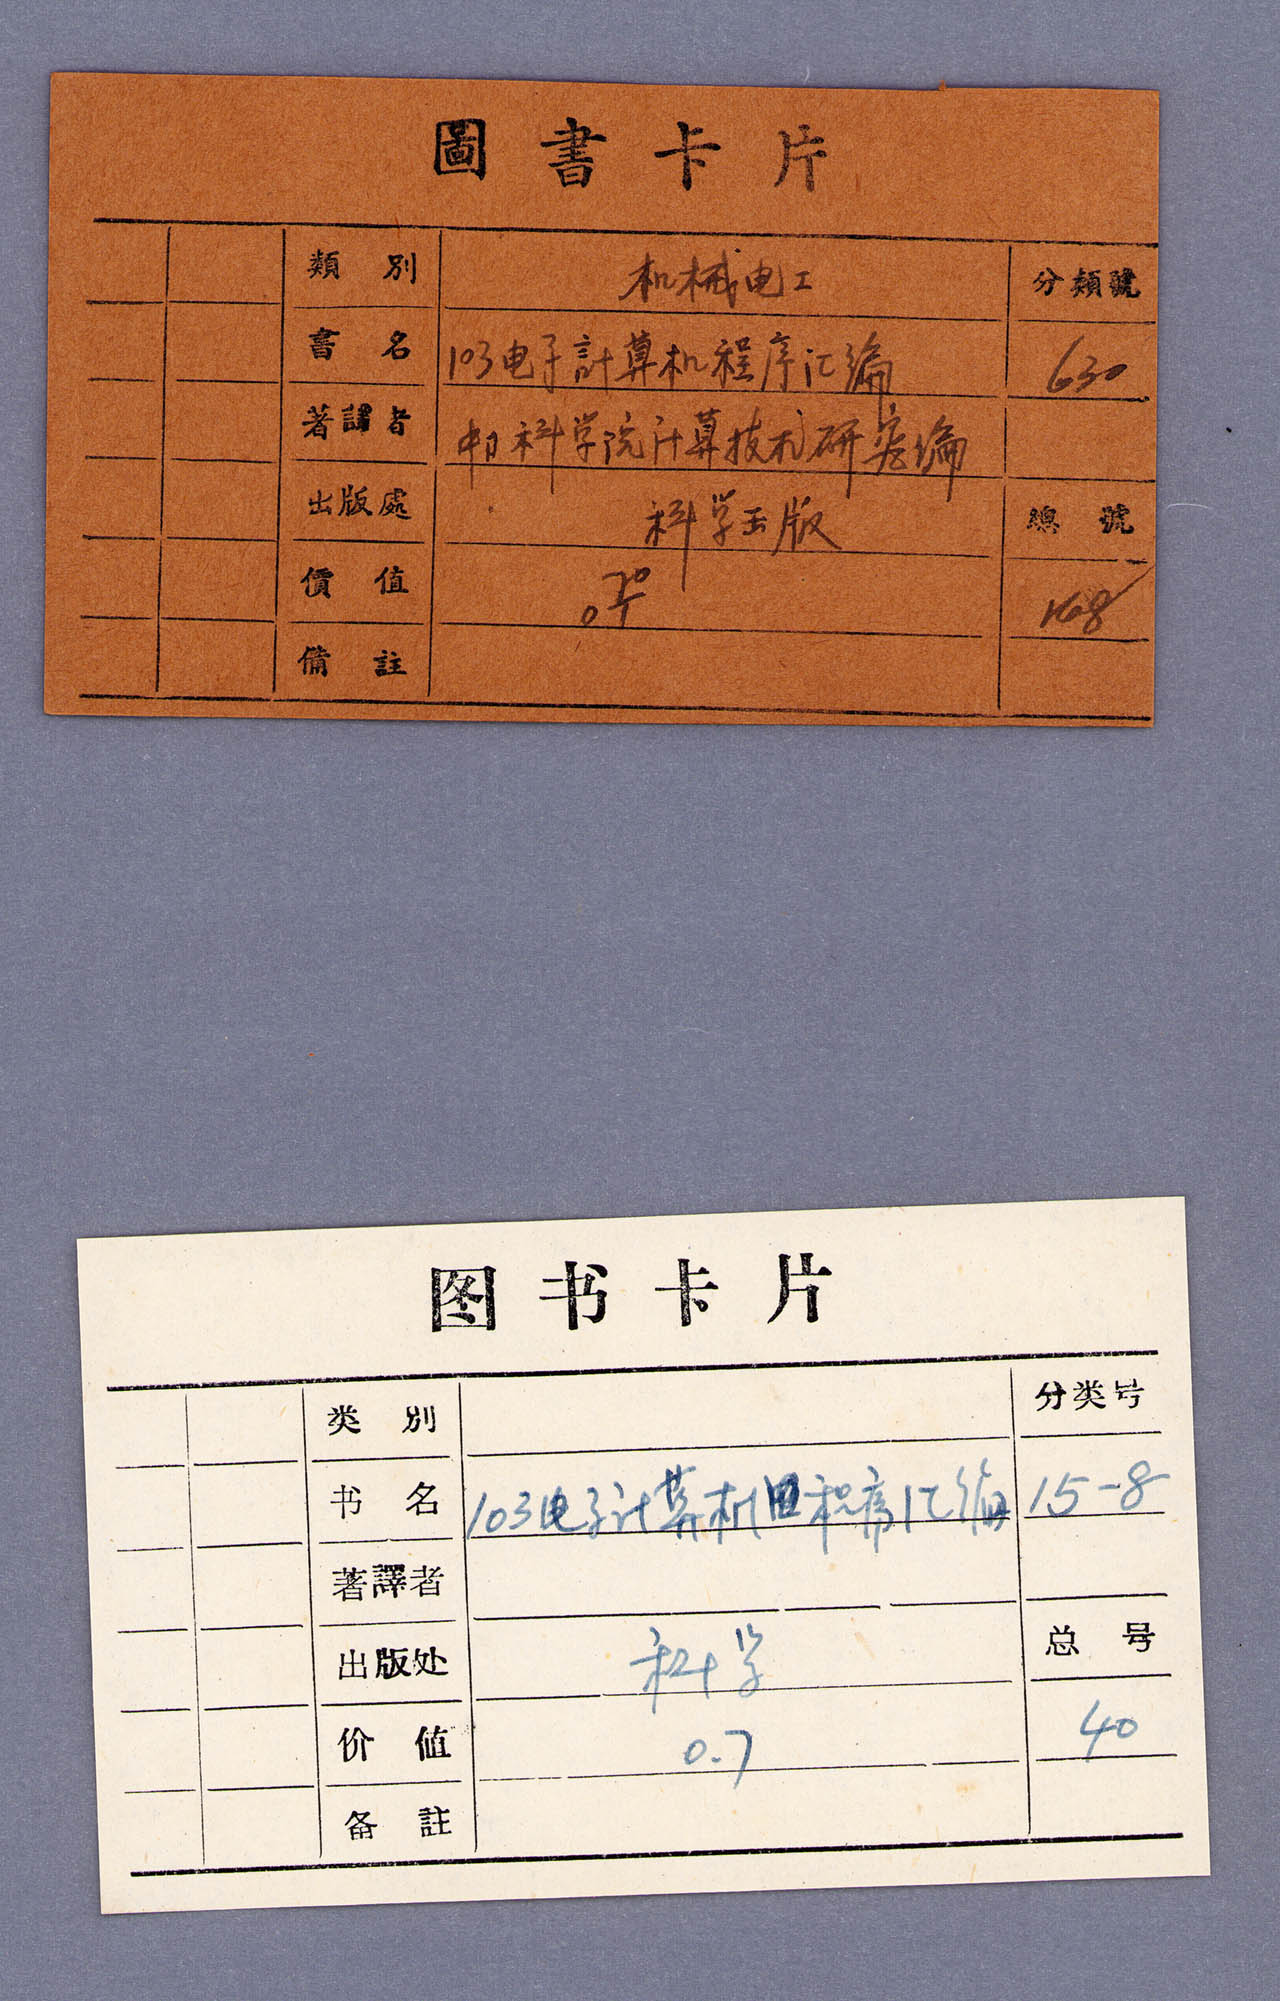 圖書卡片
類別 机械电工 分類號
書名 103电子計算机程序汇編 630
著譯者 中科学院计算技术研究编
出版處 科学出版 總號
價值 0 70 168
備註
图书卡片
类別 分类号
书名 103电子计算机程序汇编 15-8
著譯者
出版处 科学 总号
价值 0.7 40
备註